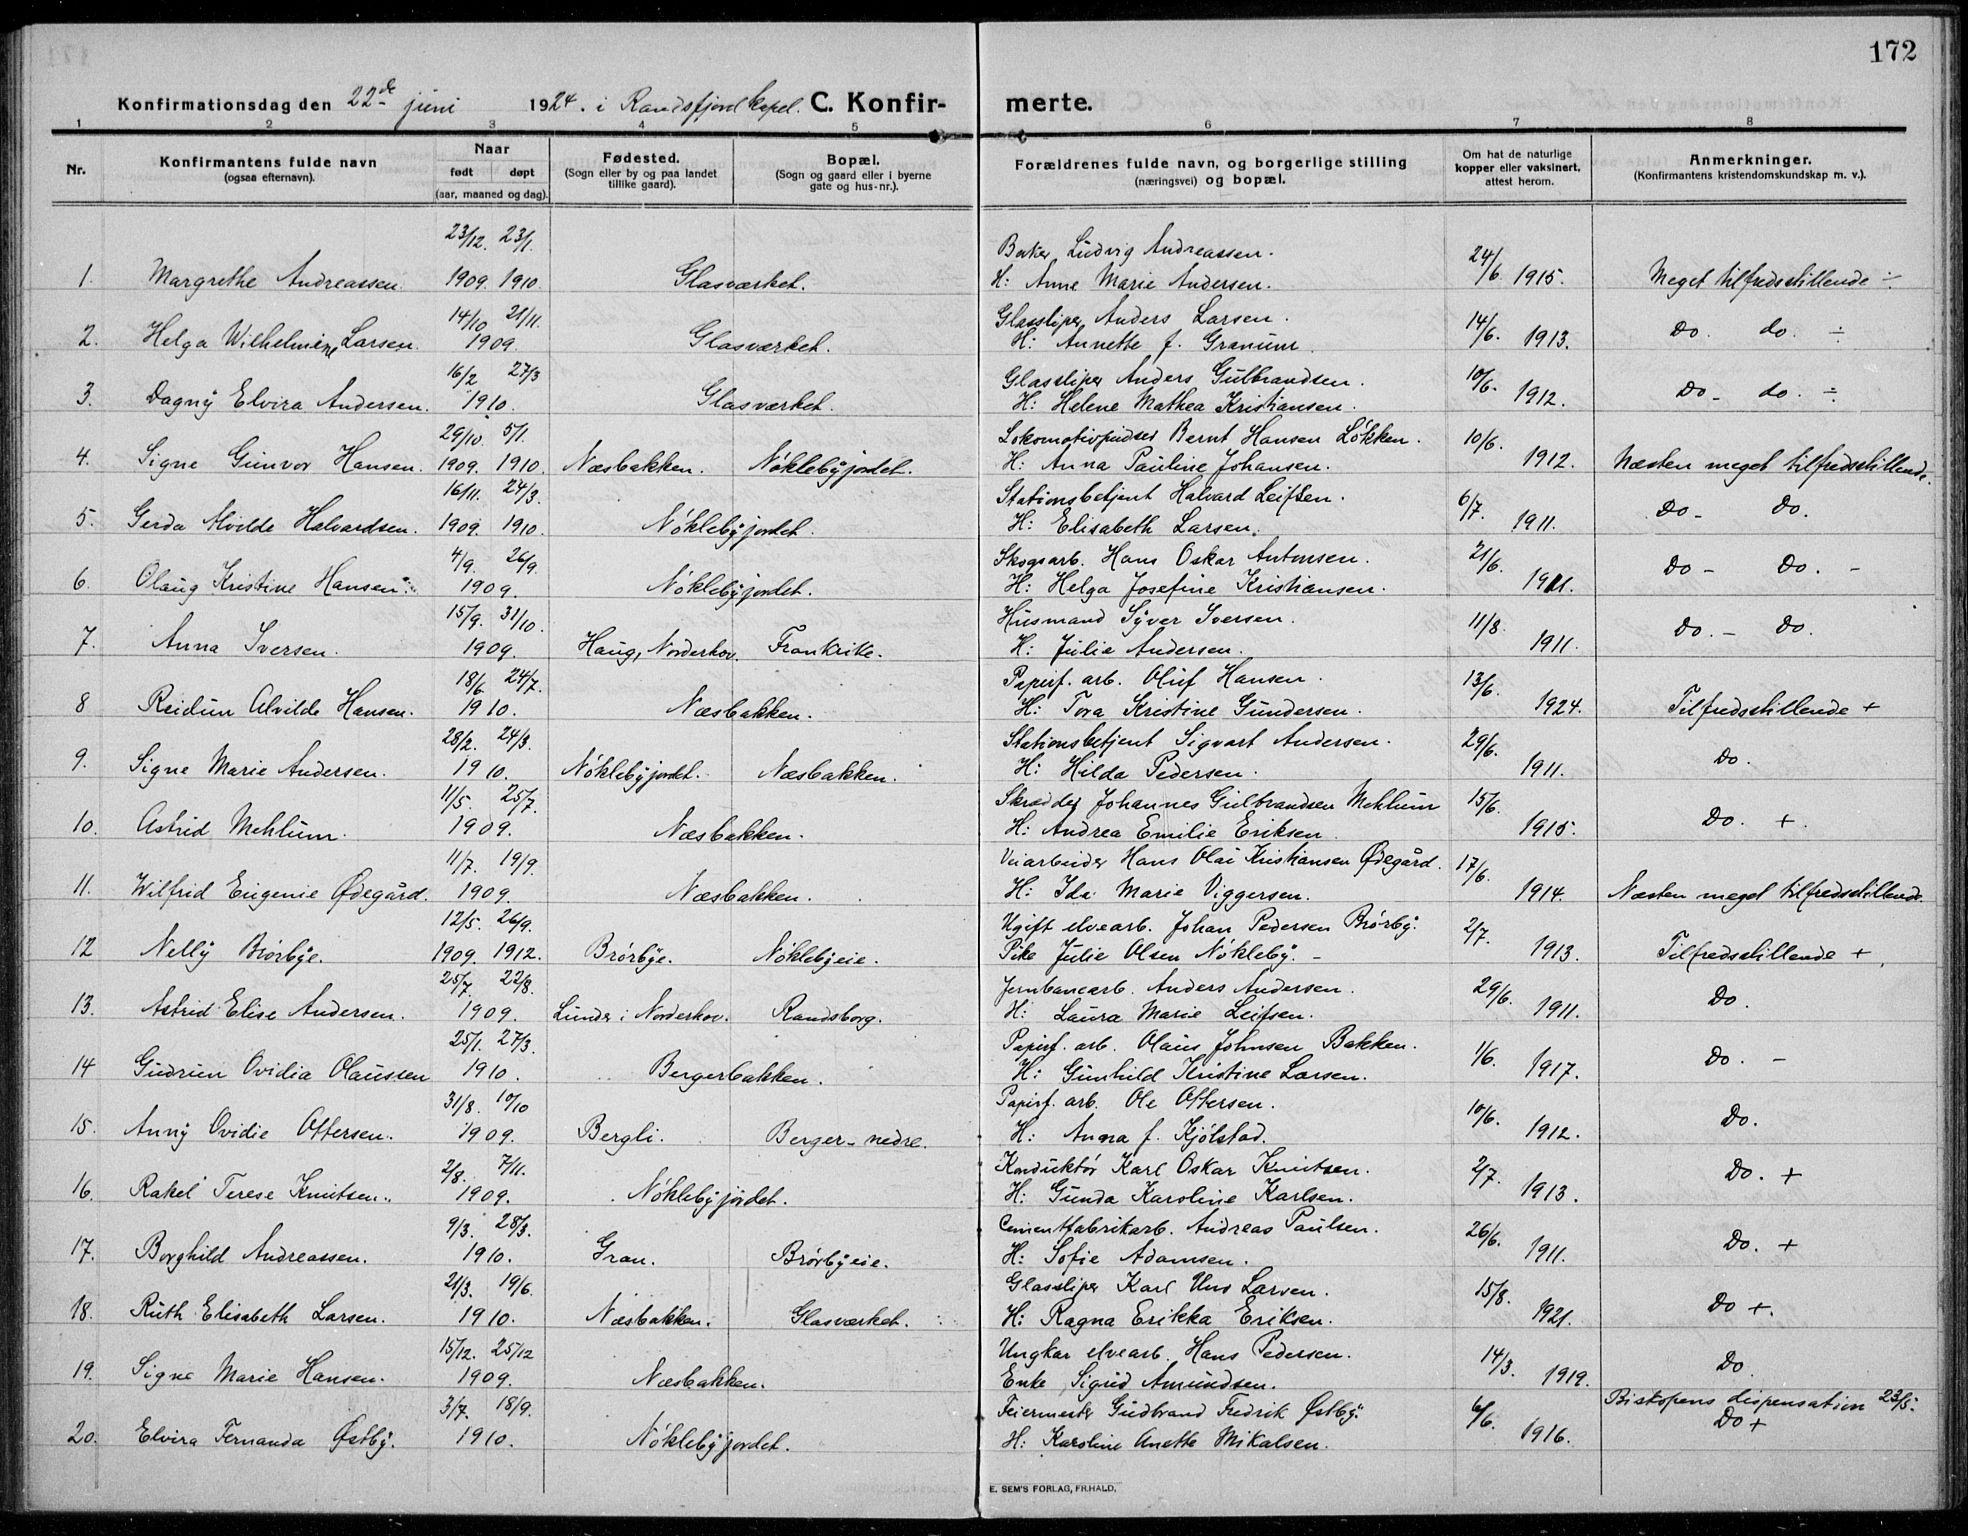 172
Konfirmationsdag den 22de juni 1924. i Randsfjord kapel. C. Konfir- merte.
1 2 3 4 5 6 7 8
Nr. Konfirmantens fulde navn (ogsaa efternavn). Naar født døpt (aar, maaned og dag). Fødested. (Sogn eller by og paa landet tillike gaard). Bopæl. (Sogn og gaard eller i byerne gate og hus-nr.). Forældrenes fulde navn, og borgerlige stilling (næringsvei) og bopæl. Om hat de naturlige kopper eller vaksinert, attest herom. Anmerkninger. (Konfirmantens kristendomskundskap m. v.).
23/12. 23/1. Baker Ludvig Andreassen. 24/6
1. Margrethe Andreassen. 1909. 1910. Glasværket. H: Anne Marie Andersen. 1915. Meget tilfredsstillende ÷
14/10 21/11. Glassliper Anders Larsen. 14/6.
2. Helga Wilhelmine Larsen. 1909. Glasværket. H: Annette f. Granum. 1913. Do. do. ÷
16/2 27/3 Glassliper Anders Gulbrandsen. 10/6.
3. Dagny Elvira Andersen. 1910. Glasværket. H: Helene Mathea Kristiansen. 1912. Do - do. ÷
29/10. 5/1. Lokomotivpudser Bernt Hansen Løkken. 10/6.
4. Signe Gunvor Hansen. 1909. 1910. Næsbakken. Nøklebyjordet. H: Anna Pauline Johansen. 1912. Næsten meget tilfredsstillende.
16/11. 24/3. Stationsbetjent Halvard Leifsen. 6/7.
5. Gerda Alvilde Halvardsen. 1909. 1910. Nøklebyjordet. H: Elisabeth Larsen. 1911. Do - Do.
4/9. 26/9. Skogsarb. Hans Oskar Antonsen. 21/6.
6. Olaug Kristine Hansen. 1909. Nøklebyjordet. H: Helga Josefine Kristiansen. 1911. Do - Do. -
15/9. 31/10. Husmand Syver Iversen. 11/8.
7. Anna Iversen. 1909. Haug, Norderhov. Frankrike. H: Julie Andersen. 1911. Do. - Do.
18/6 24/7. Papirf. arb. Oluf Hansen. 13/6.
8 Reidun Alvilde Hansen. 1910. Næsbakken. H: Tora Kristine Gundersen. 1924. Tilfredsstillende +
28/2. 24/3. Stationsbetjent Sigvart Andersen. 29/6.
9. Signe Marie Andersen. 1910. Nøklebyjordet. Næsbakken. H: Hilda Pedersen. 1911. Do.
11/5. 25/7. Skrædder Johannes Gulbrandsen Mehlum 15/6.
10. Astrid Mehlum. 1909. Næsbakken. H: Andrea Emilie Eriksen. 1915. Do. +.
11/7. 19/9. Veiarbeider Hans Olai Kristiansen Ødegård. 17/6.
11. Wilfrid Eugenie Ødegård. 1909. Næsbakken. H: Ida Marie Viggersen. 1914. Næsten meget tilfredsstillende.
12/5. 26/9. Ugift elvearb. Johan Pedersen Brørby. 2/7.
12 Nelly Brørbye. 1909. 1912. Brørbye. Nøklebyeie. Pike Julie Olsen Nøkleby. - 1913. Tilfredsstillende +
25/7. 22/8. Jernbanearb. Anders Andersen. 29/6.
13. Astrid Elise Andersen. 1909. Lunder i Norderhov. Randsborg. H: Laura Marie Leifsen. 1911. Do.
25/1. 27/3. Papirf. arb. Olaus Johnsen Bakken. 1/6.
14 Gudrun Ovidia Olaussen 1910. Bergerbakken. H: Gunhild Kristine Larsen. 1917. Do. -
31/8. 10/10 Papirf. arb. Ole Ottersen. 10/6.
15. Anny Ovidie Ottersen. 1909. Bergli. Berger-nedre. H: Anna f. Kjølstad. 1912. Do.
2/8. 7/11. Konduktør Karl Oskar Knutsen. 2/7.
16. Rakel Terese Knutsen. 1909. Nøklebyjordet. H: Gunda Karoline Karlsen. 1913. Do. +
9/3. 28/3. Cementfabrikarb. Andreas Paulsen. 26/6.
17. Borghild Andreassen. 1910. Gran. Brørbyeie. H: Sofie Adamsen. 1911. Do. +
21/3. 19/6. Glassliper Karl Larsen. 15/8.
18. Ruth Elisabeth Larsen. 1910. Næsbakken. Glasværket. H: Ragna Erikka Eriksen. 1921. Do +.
15/12. 25/12 Ungkar elvearb. Hans Pedersen. 14/3
19. Signe Marie Hansen. 1909. Næsbakken. Enke Sigrid Amundsen. 1919. Do
3/7. 18/9. Feiermester Gudbrand Fredrik Østby. 6/6. Biskopens dispensation 23/5.
20. Elvira Fernanda Østby. 1910. Nøklebyjordet. H: Karoline Anette Mikalsen. 1916. Do +
E. SEM'S FORLAG, FR.HALD.